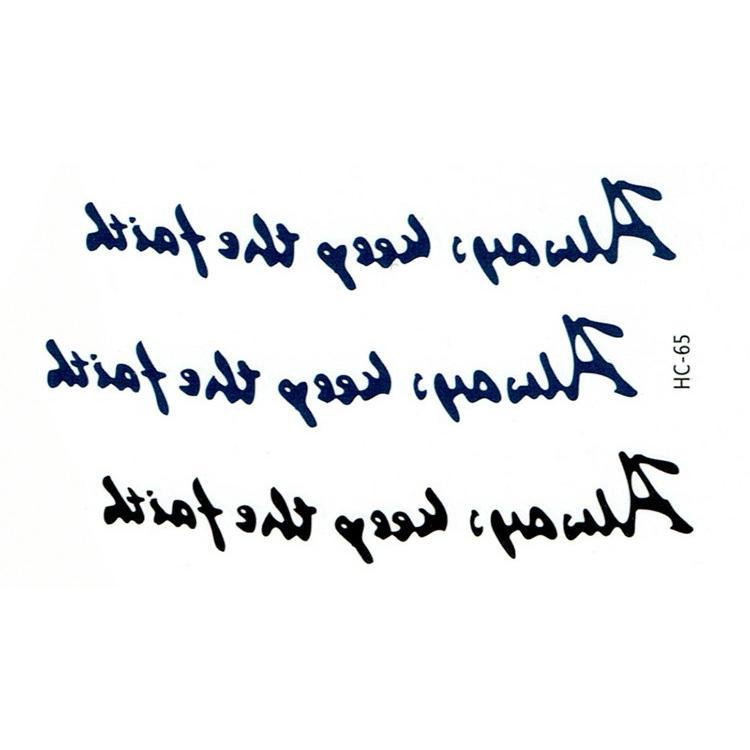 Always keep the faith
Always keep the faith
HC-65
Always keep the faith